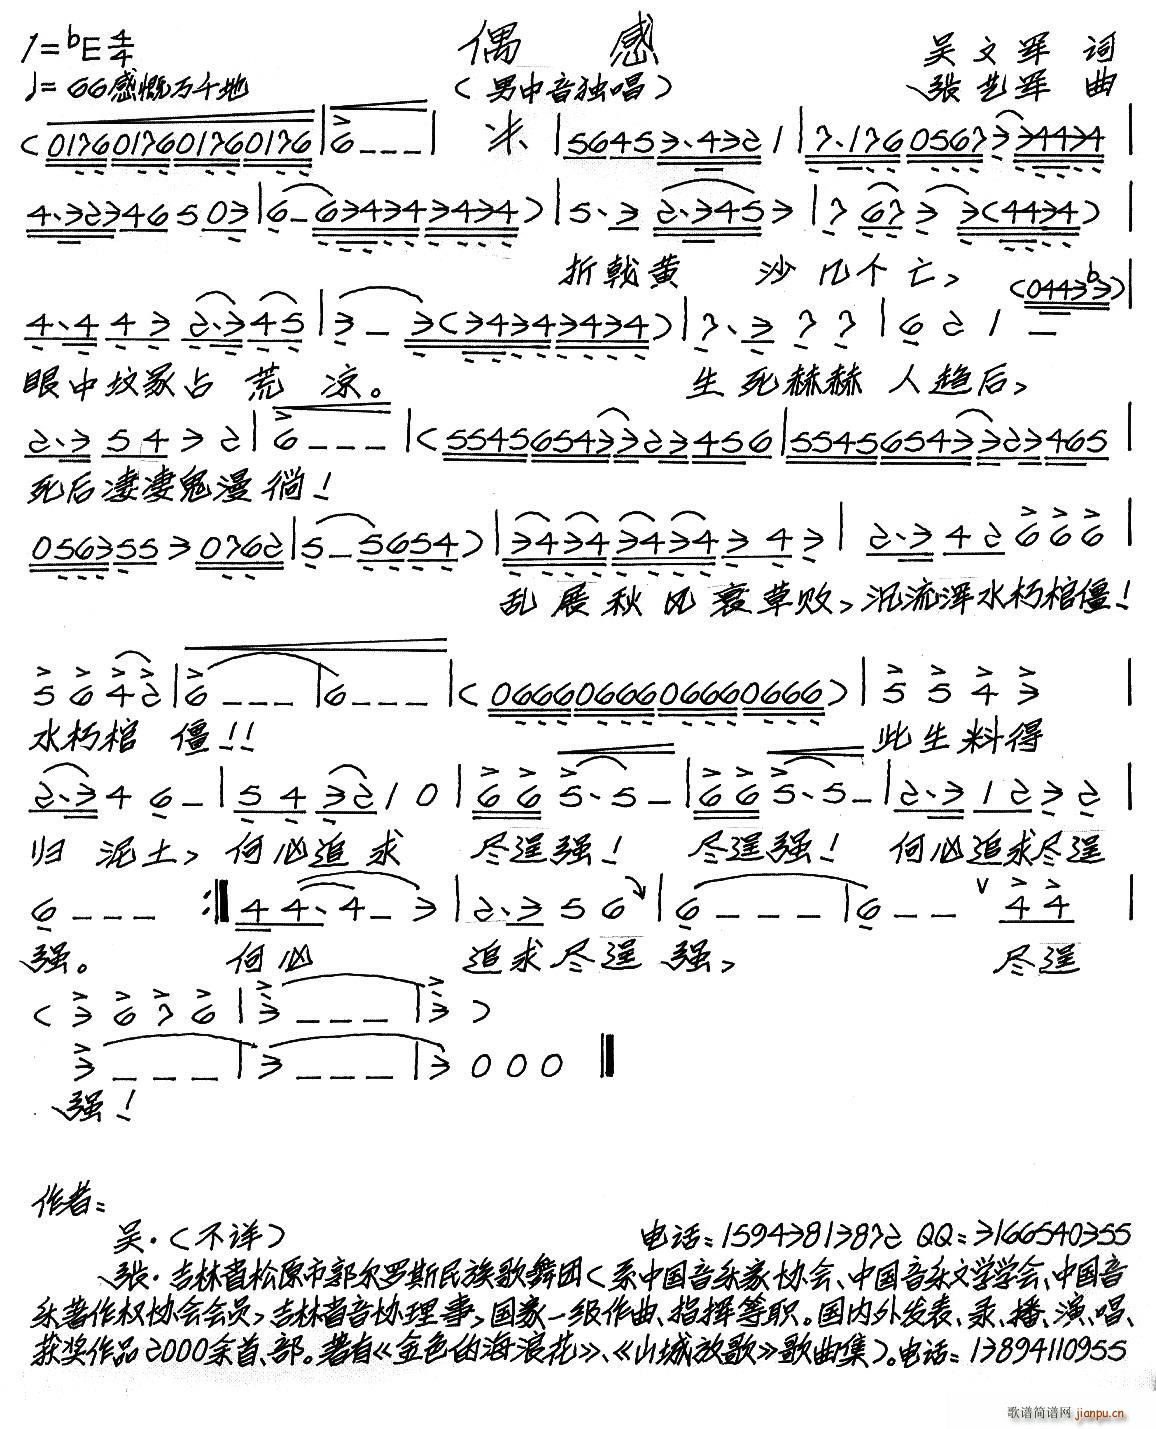 1=ᵇE 4/4 偶 感 吴文军 词
♩=66感慨万千地 (男中音独唱) 张艺军 曲
(0176017601760176|6---| 米、|5645 3·432 1|7·176 0567 3 34434|
4·32346503|6-634343434)|5·3 2·3453|7 67 3 3(4434)|
折戟黄 沙几个亡、
4·4 4 3 2·345|3-3(34343434)|7·3 7 7|6 2 1 - (0443ᵇ3)|
眼中坟冢占 荒 凉。 生死赫赫 人趋后、
2·3 54 3 2|6---|(5545654332 3456|5545654332 3465|
死后凄凄鬼漫徜!
056355 3 0762|5-5654)|34343434 3 4 3|2·3 42 6 6 6|
乱展秋风衰草败、汎流浑水朽棺僵!
5 6 4 2|6---|6---|(0666066606660666)|5 5 4 3|
水朽棺 僵!! 此生料得
2·3 4 6-|54 32 1 0|66 5·5-|66 5·5-|2·3 12 3 2|
归 泥土、何必追 求 尽逞强! 尽逞强! 何必追求尽逞
6--- :‖44·4-3|2·3 5 6|6---|6-- 44|
强。 何必 追求尽逞 强、 尽逞
(3 6 7 6|3---|3)
3---|3---|3 0 0 0‖
强!
作者:
吴·(不详) 电话:15943813872 QQ:3166540355
张·吉林省松原市郭尔罗斯民族歌舞团(系中国音乐家协会、中国音乐文学学会、中国音
乐著作权协会会员、吉林省音协理事、国家一级作曲、指挥等职。国内外发表、录、播、演、唱、
获奖作品2000余首、部。著有《金色的海浪花》、《山城放歌》歌曲集)。电话:13894110955
歌谱简谱网 jianpu.cn